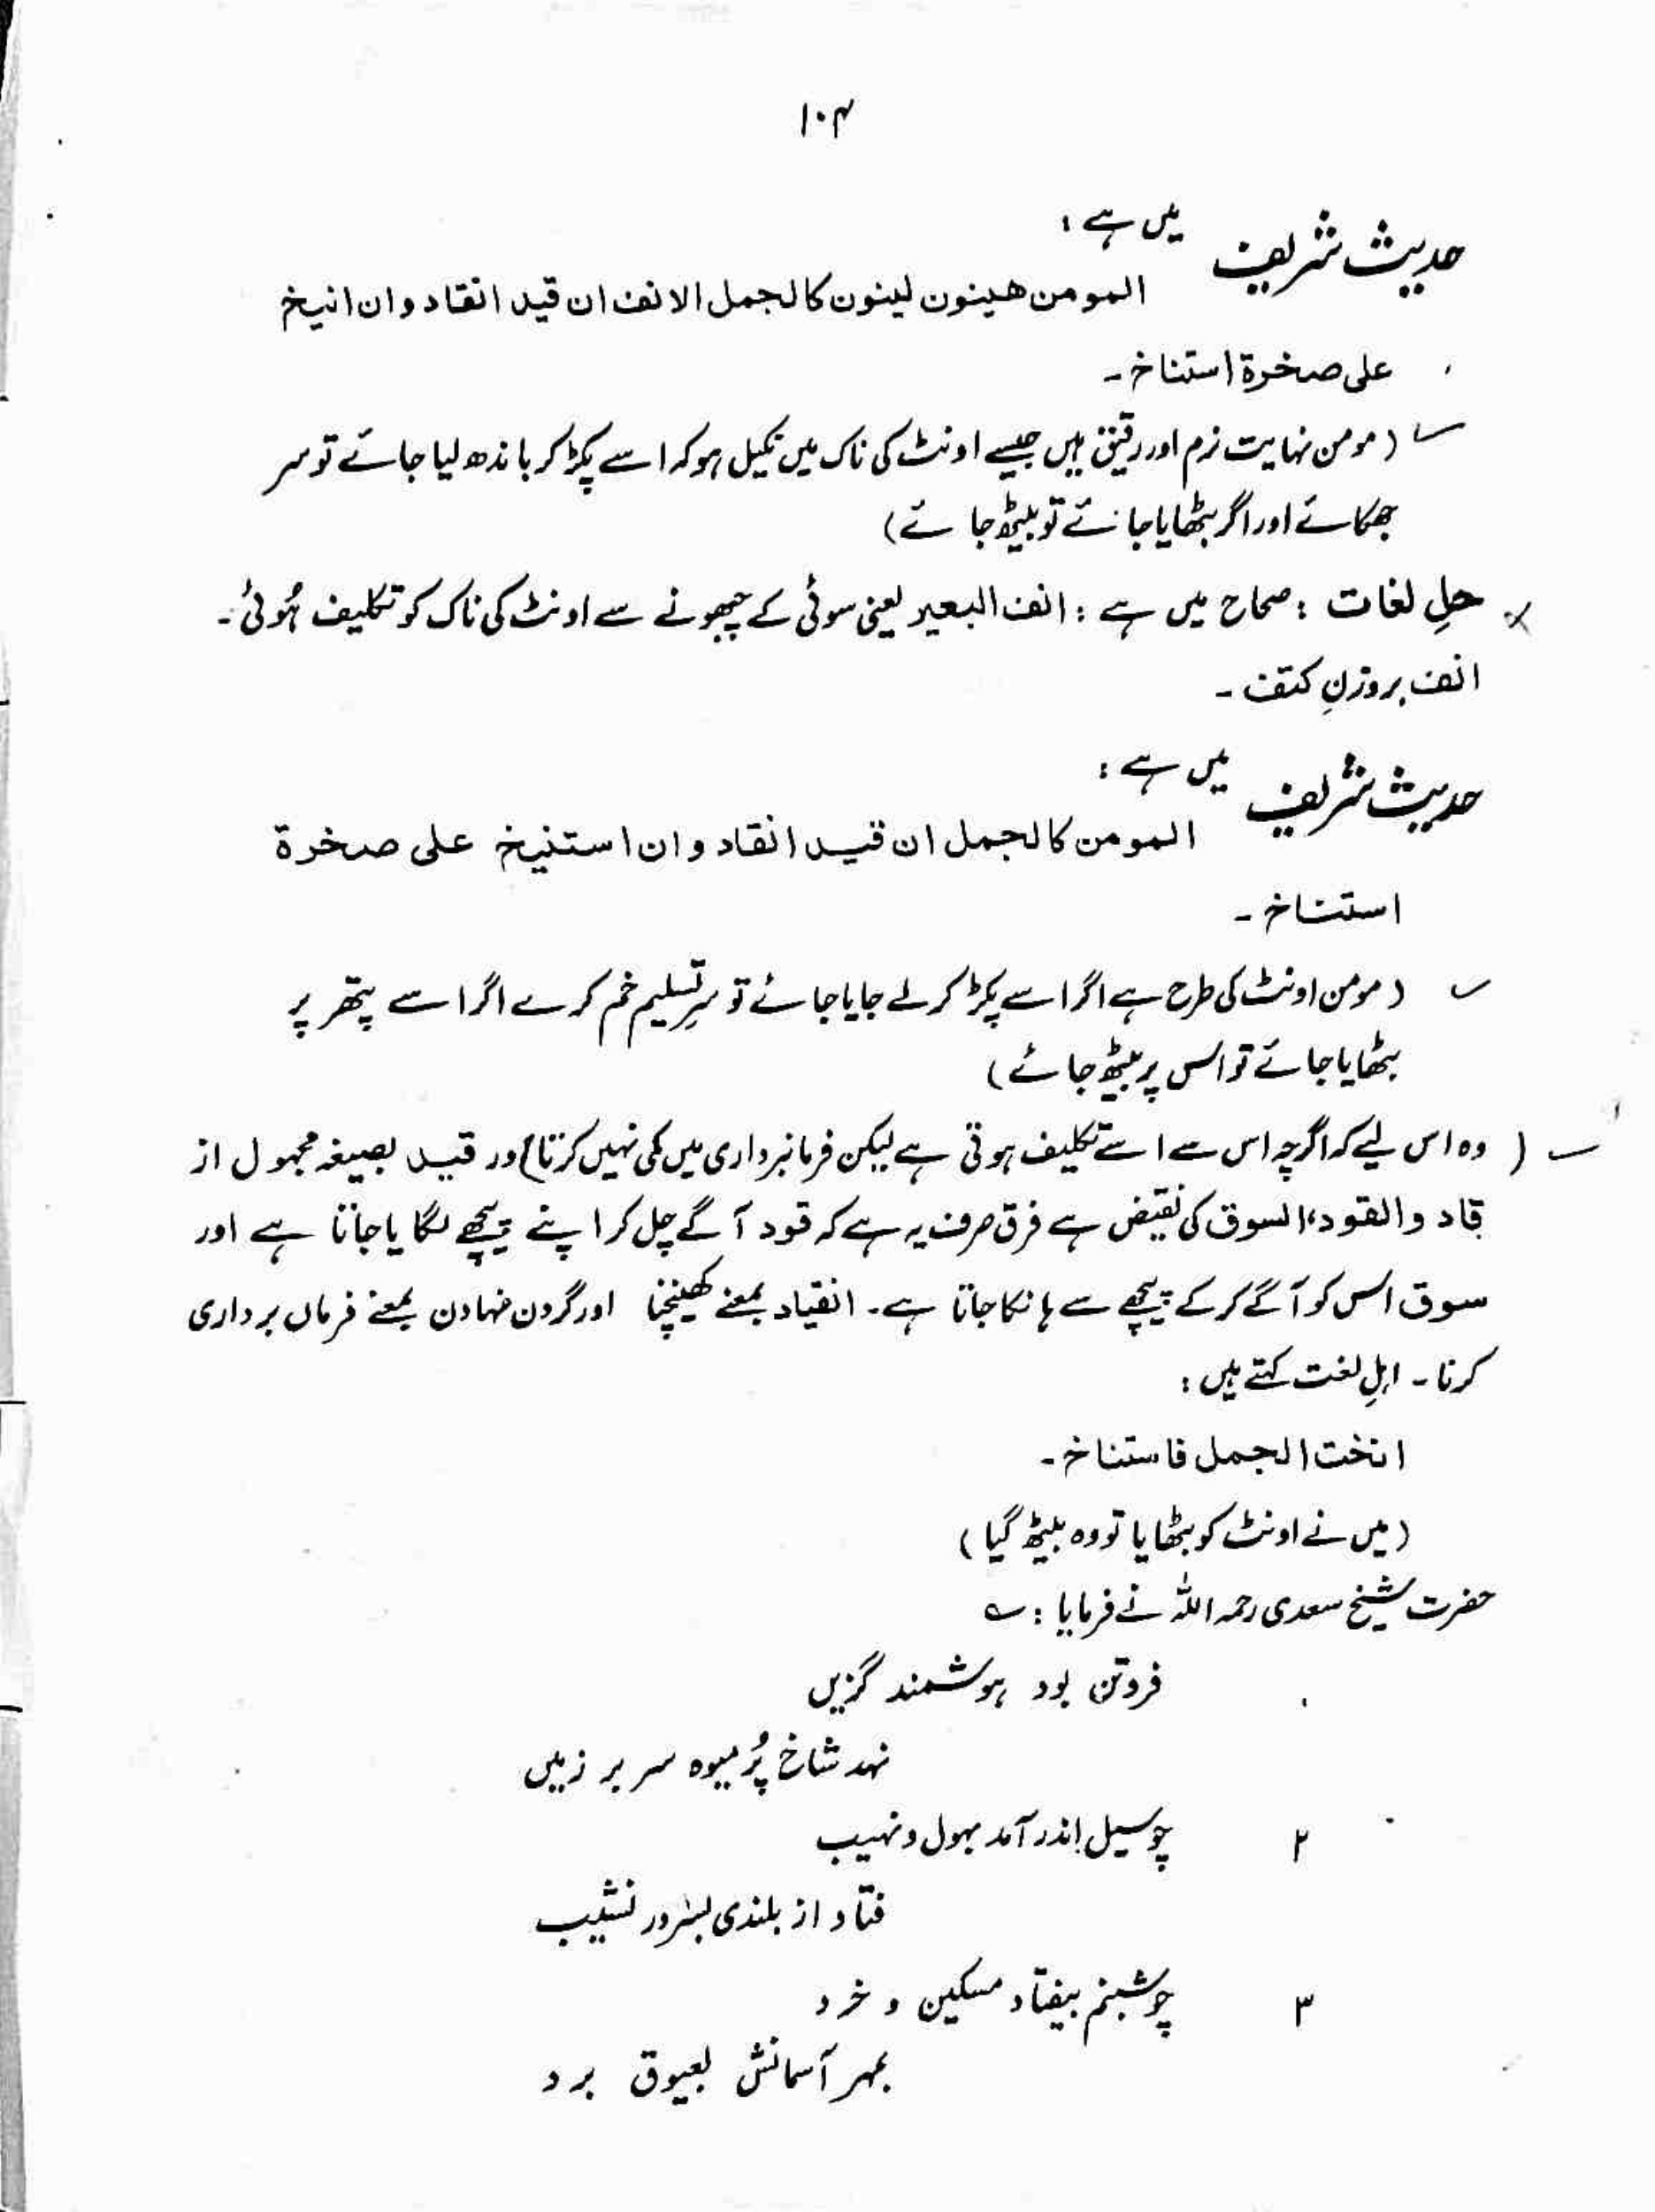 ۱۰۴
حدیث شریف میں ہے :
المومن ھینون لینون کالجمل الانف ان قید انقاد وان انیخ
علی صخرۃ استناخ ۔
( مومن نہایت نرم اور رقیق ہیں جیسے اونٹ کی ناک میں نکیل ہو کہ اسے پکڑ کر باندھ لیا جائے تو سر
جھکائے اور اگر بٹھایا جائے تو بیٹھ جائے )
حلِ لغات : صحاح میں ہے : انف البعیر یعنی سوئی کے چبھونے سے اونٹ کی ناک کو تکلیف ہُوئی ۔
انف بروزنِ کتف ۔
حدیث شریف میں ہے :
المومن کالجمل ان قید انقاد وان استنیخ علی صخرۃ
استناخ ۔
( مومن اونٹ کی طرح ہے اگر اسے پکڑ کر لے جایا جائے تو سرِ تسلیم خم کرے اگر اسے پتھر پر
بٹھایا جائے تو اس پر بیٹھ جائے )
( وہ اس لیے کہ اگرچہ اس سے اسے تکلیف ہوتی ہے لیکن فرمانبرداری میں کمی نہیں کرتا ) اور قید بصیغہ مجہول از
قاد والقود ، السوق کی نقیض ہے فرق صرف یہ ہے کہ قود آگے چل کر اپنے پیچھے لگایا جاتا ہے اور
سوق اس کو آگے کر کے پیچھے سے ہانکا جاتا ہے ۔ انقیاد بمعنے کھینچنا اور گردن نہادن بمعنے فرماں برداری
کرنا ۔ اہلِ لغت کہتے ہیں :
انخت الجمل فاستناخ ۔
( میں نے اونٹ کو بٹھایا تو وہ بیٹھ گیا )
حضرت شیخ سعدی رحمہ اللہ نے فرمایا : ؎
فروتن بود ہوشمند گزیں
نہد شاخ پُر میوہ سر بر زمیں
۲ چو سیل اندر آمد بہول و نہیب
فتاد از بلندی بسر در نشیب
۳ چو شبنم بیفتاد مسکین و خرد
بمہر آسمانش بعیوق برد